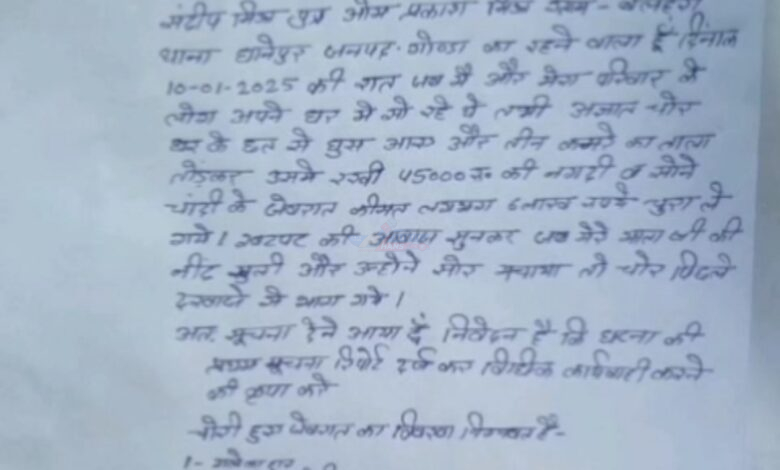 संदीप मिश्र पुत्र ओम प्रकाश मिश्र ग्राम -
थाना धानेपुर जनपद-गोण्डा का रहने वाला है दिनांक
10-01-2025 की रात जब मै और मेरा परिवार के
लोग अपने घर मे सो रहे थे तभी अज्ञात चोर
घर के छत से घुस आए और तीन कमरे का ताला
तोड़कर उसमे रखी 45000 रु० की नगदी व सोने
चांदी के जेवरात कीमत लगभग 6 लाख रुपये चुरा ले
गये। खटपट की आवाज सुनकर जब मेरे माता जी की
नीद खुली और उन्होने शोर मचाया तो चोर पिछले
दरवाजे से भाग गये।
अतः सूचना देने आया हूँ निवेदन है कि घटना की
प्रथम सूचना रिपोर्ट दर्ज कर विधिक कार्यवाही करने
की कृपा करे
चोरी हुए जेवरात का विवरण निम्नवत है-
1-